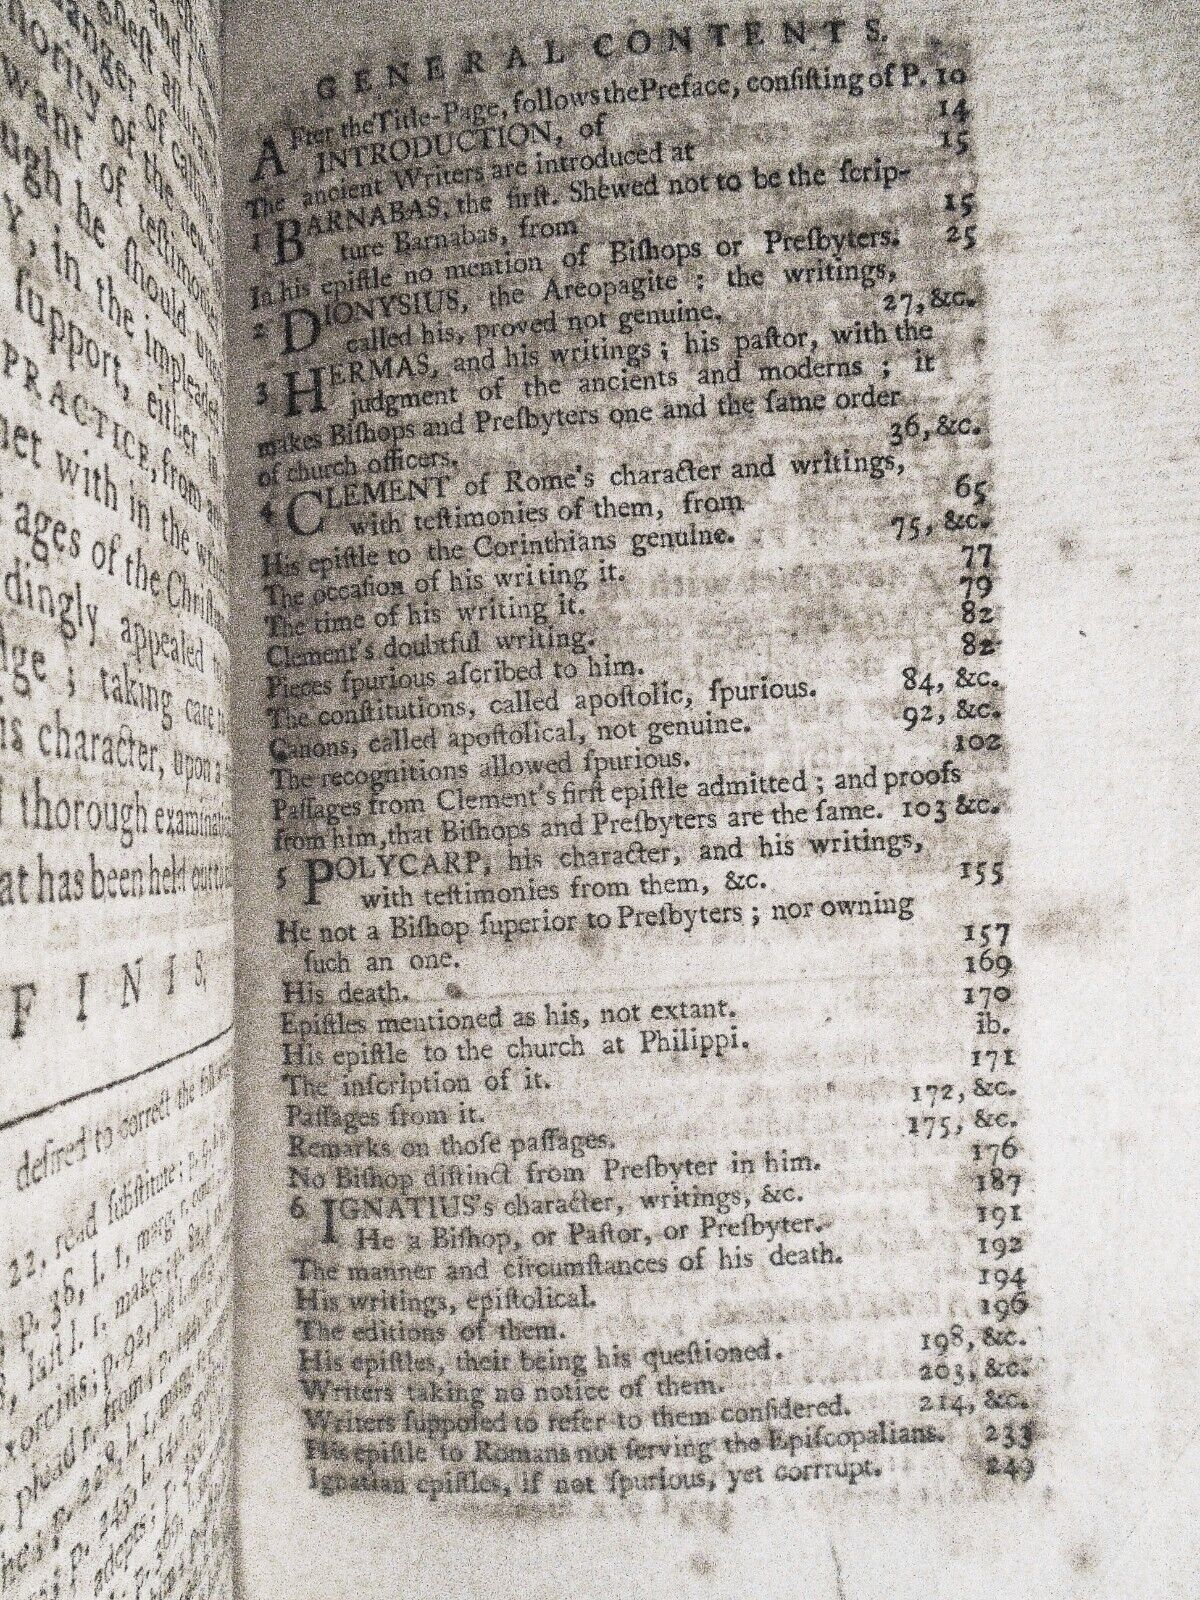 anger of calling
nority of the newe
want of testimonies
ugh he should
Y, in the impleaded
support, either in
PRACTICE, from
met with in the
ages of the Christ
dingly appealed
dge ; taking care
is character, upon a
thorough examinatio
at has been held out to
FINIS.
desired to correct the
22. read substitute ;
p. 36, l. 1, marg. r.
last l. r. make
GENERAL CONTENTS.
AFter the Title-Page, follows the Preface, consiſting of P. 10
INTRODUCTION, of 14
The ancient Writers are introduced at 15
1 BARNABAS, the firſt. Shewed not to be the ſcrip-
ture Barnabas, from 15
In his epiſtle no mention of Biſhops or Preſbyters. 25
2 DIONYSIUS, the Areopagite ; the writings,
called his, proved not genuine. 27, &c.
3 HERMAS, and his writings ; his paſtor, with the
judgment of the ancients and moderns ; it
makes Biſhops and Preſbyters one and the ſame order
of church officers. 36, &c.
4 CLEMENT of Rome's character and writings,
with teſtimonies of them, from 65
His epiſtle to the Corinthians genuine. 75, &c.
The occaſion of his writing it. 77
The time of his writing it. 79
Clement's doubtful writing. 82
Pieces ſpurious aſcribed to him. 82
The conſtitutions, called apoſtolic, ſpurious. 84, &c.
Canons, called apoſtolical, not genuine. 92, &c.
The recognitions allowed ſpurious. 102
Paſſages from Clement's firſt epiſtle admitted ; and proofs
from him, that Biſhops and Preſbyters are the ſame. 103 &c.
5 POLYCARP, his character, and his writings,
with teſtimonies from them, &c. 155
He not a Biſhop ſuperior to Preſbyters ; nor owning
ſuch an one. 157
His death. 169
Epiſtles mentioned as his, not extant. 170
His epiſtle to the church at Philippi. ib.
The inſcription of it. 171
Paſſages from it. 172, &c.
Remarks on thoſe paſſages. 175, &c.
No Biſhop diſtinct from Preſbyter in him. 176
6 IGNATIUS's character, writings, &c. 187
He a Biſhop, or Paſtor, or Preſbyter. 191
The manner and circumſtances of his death. 192
His writings, epiſtolical. 194
The editions of them. 196
His epiſtles, their being his queſtioned. 198, &c.
Writers taking no notice of them. 203, &c.
Writers ſuppoſed to refer to them conſidered. 214, &c.
His epiſtle to Romans not ſerving the Epiſcopalians. 233
Ignatian epiſtles, if not ſpurious, yet corrrupt. 249